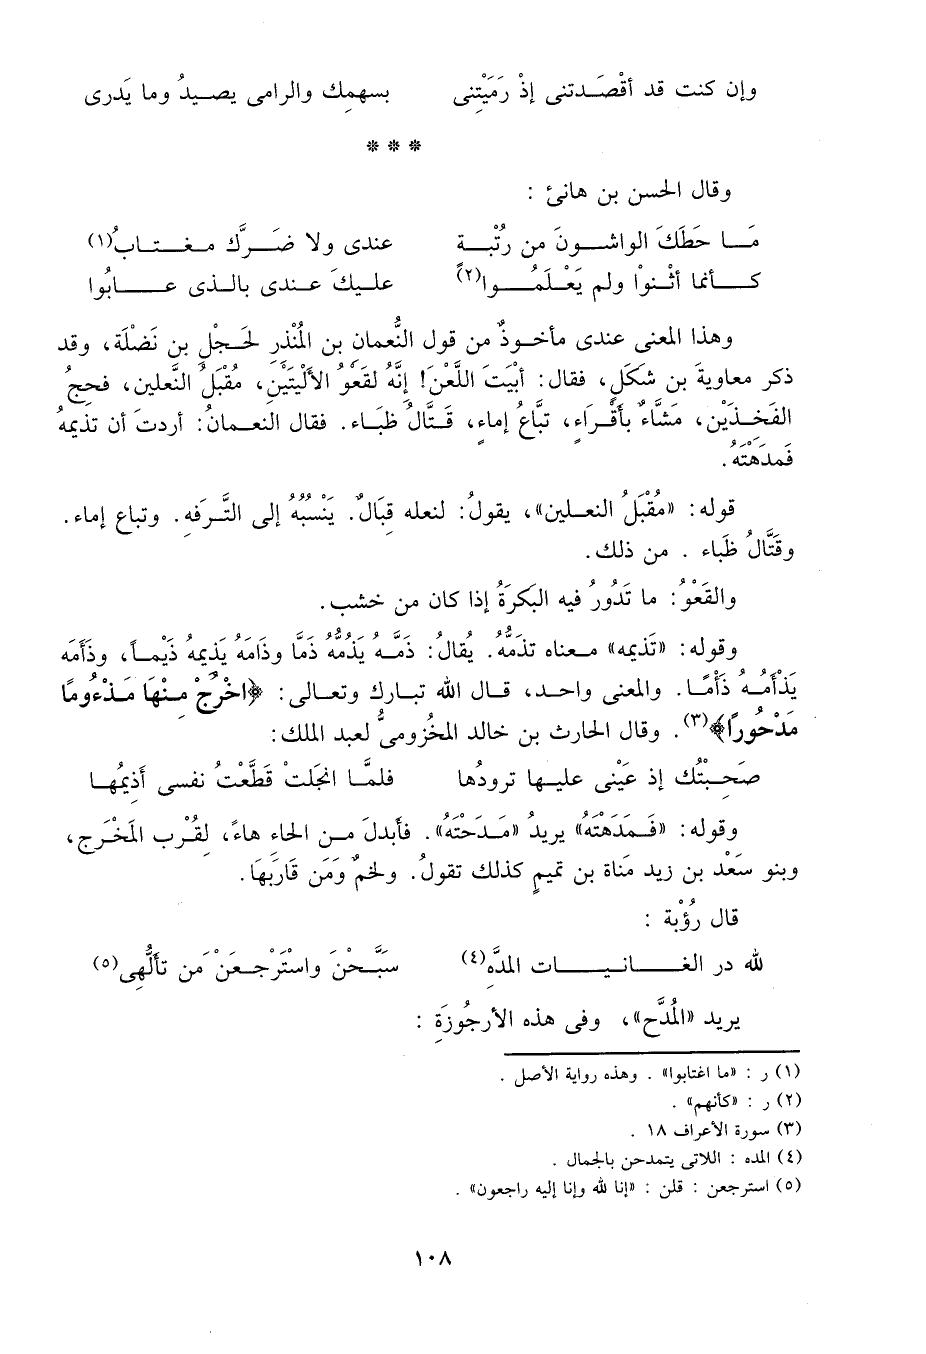 وإن كنت قد أقْصَدتنى إذْ رَمَيْتِنى بسهمِك والرامى يصيدُ وما يَدرى
* * *
وقال الحسن بن هانئ :
مَا حَطَكَ الواشونَ من رُتْبة عندى ولا ضَرَّك مغتابُ(١)
كأنما أثْنوْا ولم يَعْلَمُوا(٢) عليكَ عندى بالذى عابُوا
وهذا المعنى عندى مأخوذٌ من قول النُّعمان بن المُنْذر لحَجْلِ بن نَضْلَة، وقد
ذكر معاويةَ بن شَكَلٍ، فقال: أبَيْتَ اللَّعْنَ! إنَّهُ لقَعْوُ الأَلْيتَيْنِ، مُقْبَلُ النَّعلين، فحجُ
الفَخذَيْن، مَشَّاءٌ بأقْراءٍ، تبَّاعُ إماءٍ، قَتَّالُ ظبَاء. فقال النعمانُ: أردتَ أن تذيمهُ
فَمدَهْتَهُ.
قوله: «مُقْبَلُ النعلين»، يقولُ: لنعله قِبَالٌ. يَنْسُبُهُ إلى التَّرفَهِ. وتباع إماء.
وقَتَّالُ ظَباء . من ذلك.
والقَعْوُ: ما تَدُورُ فيه البَكرَةُ إذا كان من خشب.
وقوله: «تَذيمه» معناه تذمُّهُ. يُقالُ: ذمَّهُ يَذمُّهُ ذَمًّا وذامَهُ يَذيمُهُ ذَيْماً، وذَأمَه
يَذْأمُهُ ذَأمًا. والمعنى واحد، قال الله تبارك وتعالى: ﴿اخْرُجْ مِنْهَا مَذْءُومًا
مَدْحُورًا﴾(٣). وقال الحارث بن خالد المخْزومىُّ لعبد الملك:
صَحِبْتُك إذ عَيْنى عليها ترودُها فلمَّا انجَلتْ قَطَّعْتُ نفسى أذيمُها
وقوله: «فَمدَهْتَهُ» يريدُ «مَدَحْتَهُ». فأبدلَ من الحاء هاءً، لقُرْبِ المَخْرَجِ،
وبنو سَعْد بن زيد مَناة بن تميمٍ كذلك تقولُ. ولخمٌ ومَن قَارَبهَا.
قال رُؤْبة :
لله در الغانيات المدَّهِ(٤) سَبَّحْنَ واسْتَرْجعْنَ مَن تألُّهِى(٥)
يريد «المُدَّح»، وفى هذه الأرجُوزَةِ :
(١) ر : «ما اغتابوا» . وهذه رواية الأصل .
(٢) ر : «كأنهم» .
(٣) سورة الأعراف ١٨ .
(٤) المده : اللاتى يتمدحن بالجمال .
(٥) استرجعن : قلن : «إنا لله وإنا إليه راجعون» .
١٠٨